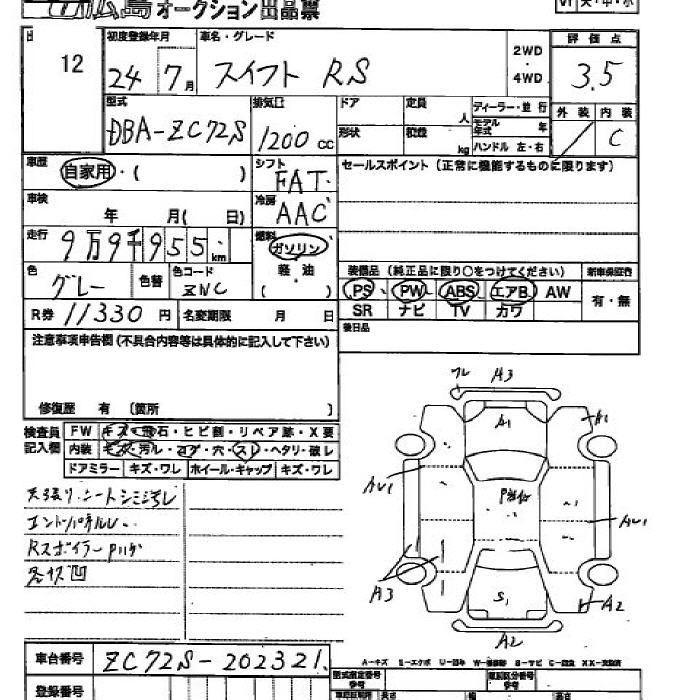 広島オークション出品票
12
初度登録年月
24年7月
車名・グレード
スイフト RS
2WD
・
4WD
評価点
3.5
型式
DBA-ZC72S
排気量
1200 CC
ドア
形状
定員
人
積載
kg
ディーラー・並行
モデル年式 年
ハンドル 左・右
外装 内装
C
車歴
自家用・( )
シフト
FAT
セールスポイント(正常に機能するものに限ります)
車検
年 月( 日)
冷房
AAC
走行
9万9千955km
燃料
ガソリン
軽油
( ・ )
色
グレー
色替
色コード
ZNC
装備品(純正品に限り○をつけてください)
新車保証書
PS PW ABS エアB AW
SR ナビ TV カワ
有・無
R券 11330円
名変期限 月 日
後日品
注意事項申告欄(不具合内容等は具体的に記入して下さい)
修復歴 有 〔箇所 〕
検査員記入欄
FW キズ・飛石・ヒビ割・リペア跡・X要
内装 キズ・汚レ・コゲ・穴・スレ・ヘタリ・破レ
ドアミラー キズ・ワレ ホイール・キャップ キズ・ワレ
天張り、シートシミ汚レ
Rスポイラーハゲ
各キズ凹
A3
A1
A1
AU1
AU1
A3
S1
A2
A2
車台番号 ZC72S-202321
登録番号
A-キズ E-エクボ U-凹み S-サビ
型式指定番号
類別区分番号
参考
長さ
幅
高さ